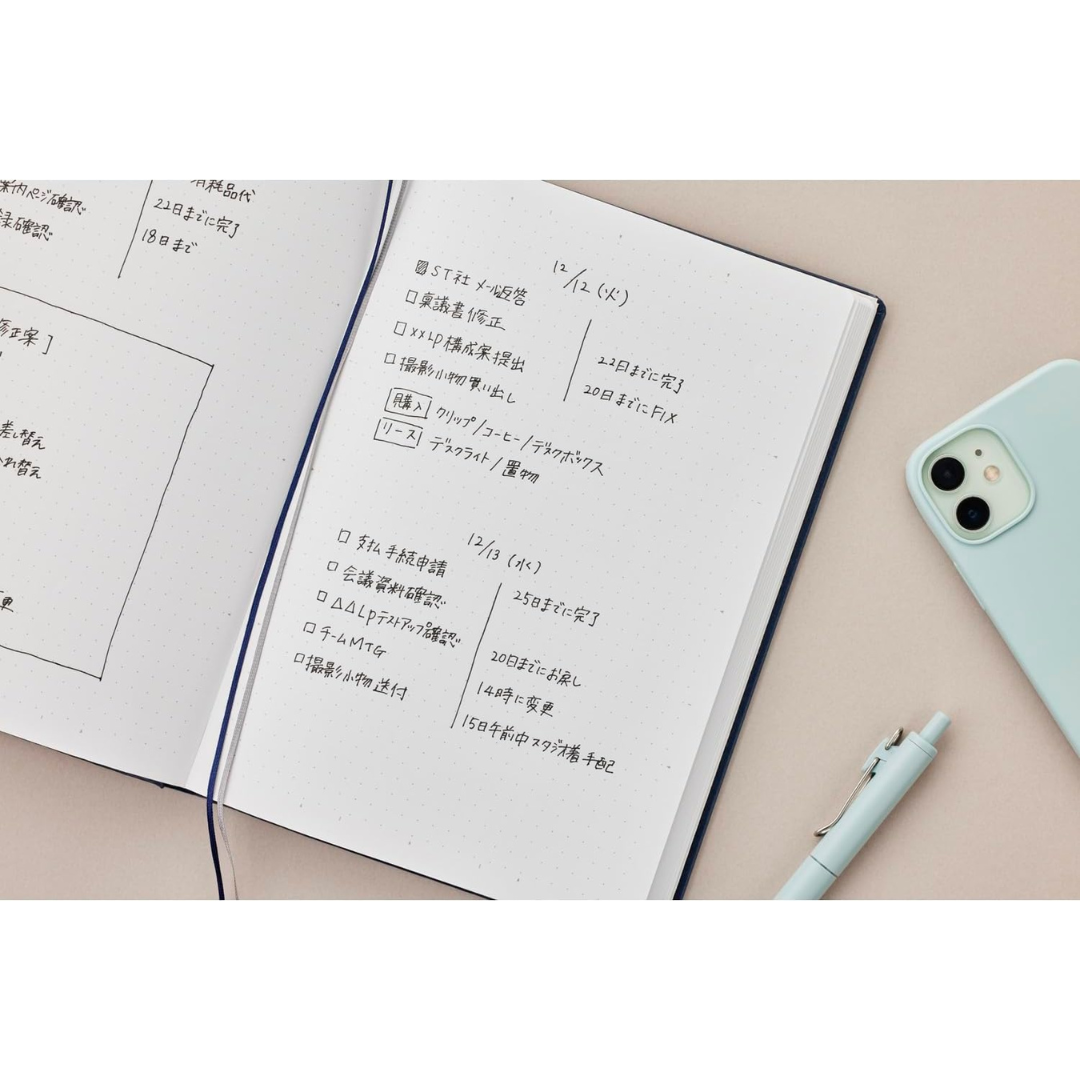 案内ページ確認
録確認
消耗品代
22日までに完了
18日まで
修正案]
差し替え
れ替え
更
12/12(火)
☒ST社 メール返答
□稟議書修正
□××LP構成案提出
□撮影小物買い出し
購入 クリップ/コーヒー/デスクボックス
リース デスクライト/置物
22日までに完了
20日までにFIX
12/13(水)
□支払手続申請
□会議資料確認
□△△LPテストアップ確認
□チームMTG
□撮影小物送付
25日までに完了
20日までにお戻し
14時に変更
15日午前中スタジオ着手配